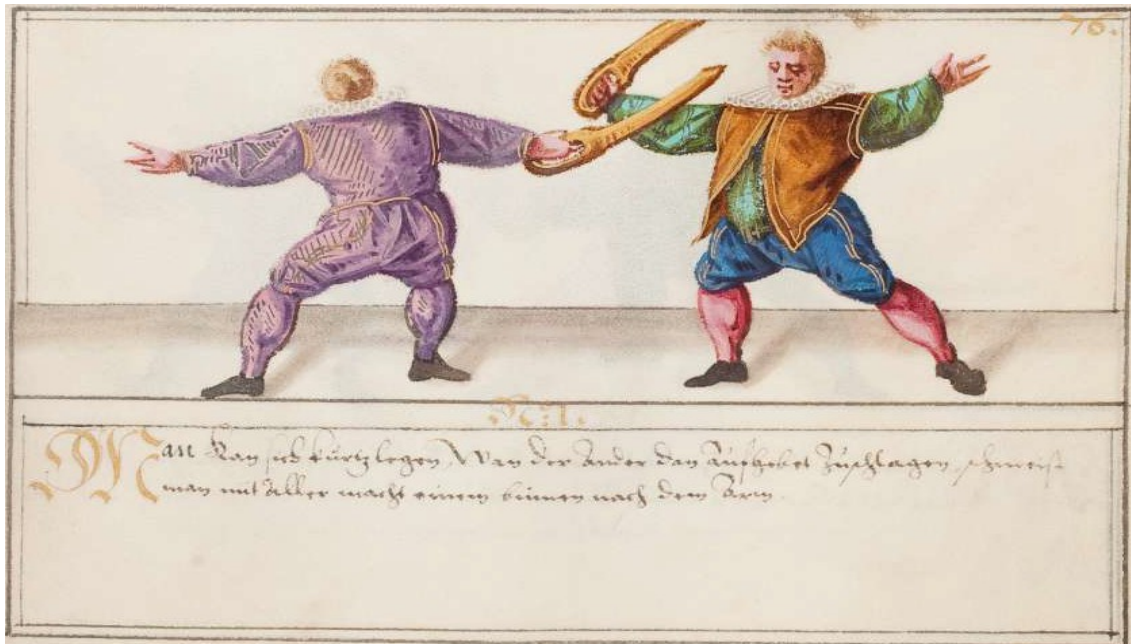 76.
N: 1.
Man Kan sich kürtz legen, Wan der Ander dan Aufhebet Zuschlagen, schmeist
man mit Aller macht einem binnen nach dem Arm.